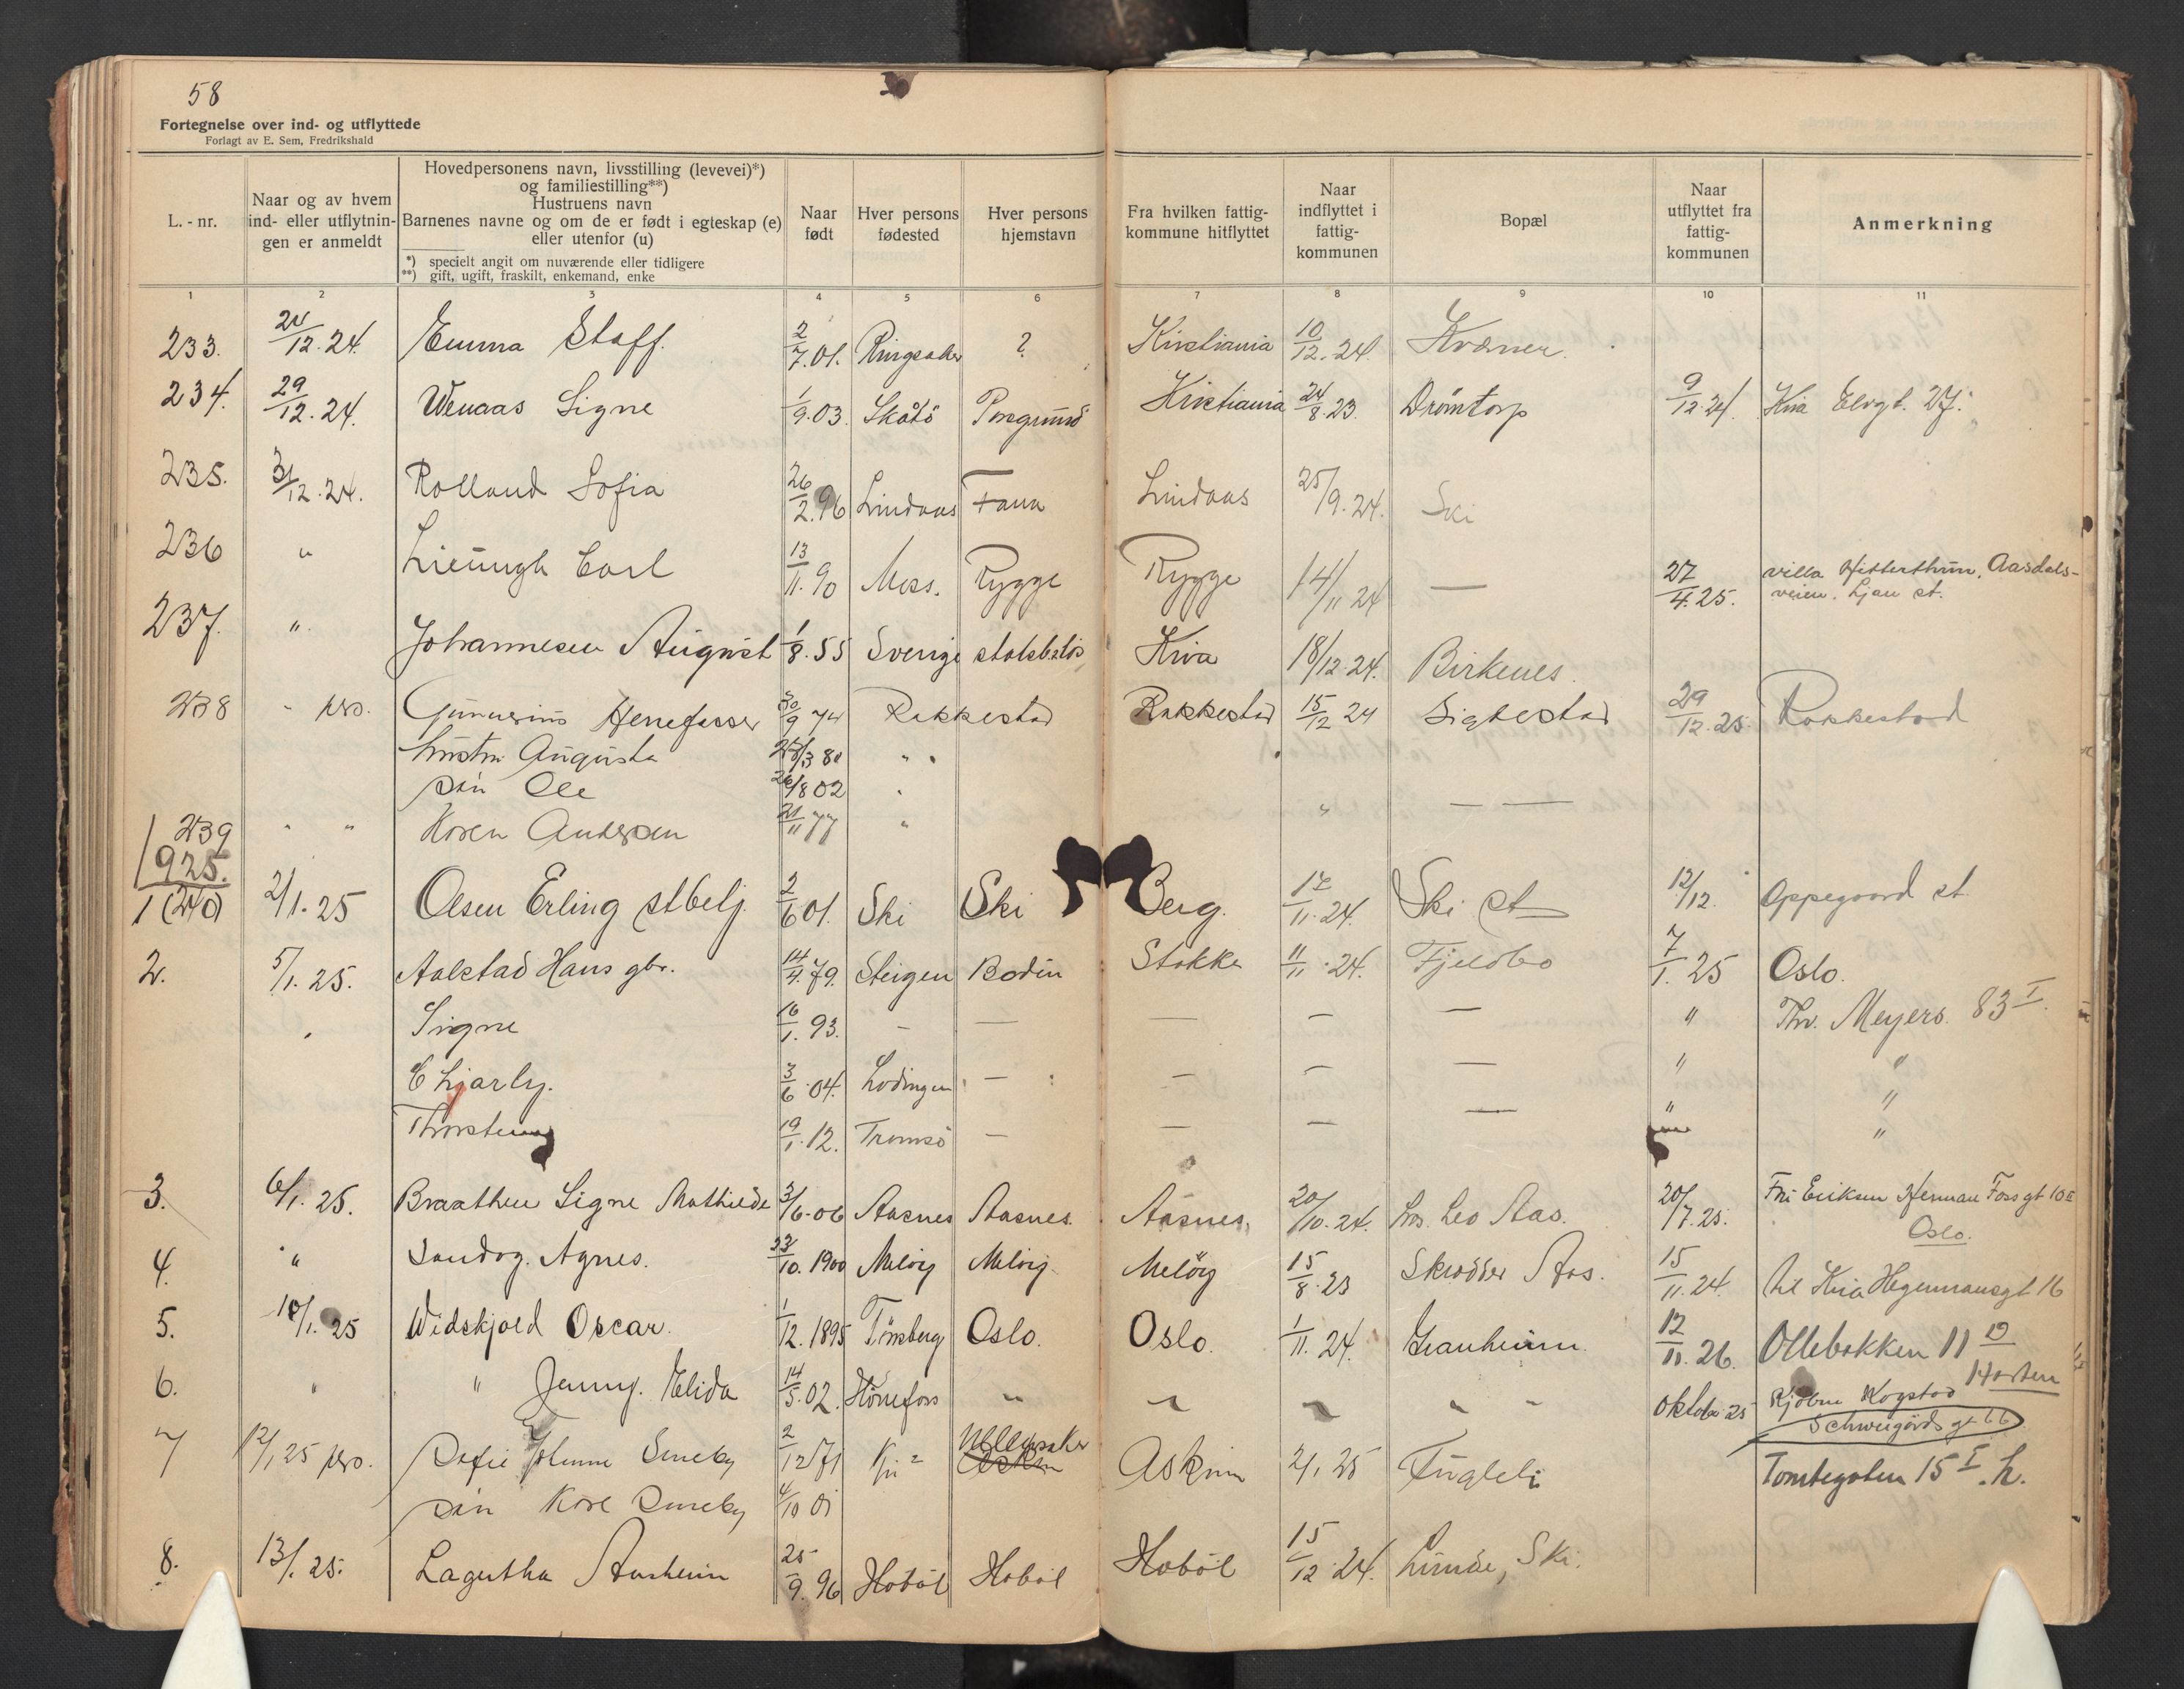 58
Fortegnelse over ind- og utflyttede
Forlagt av E. Sem, Fredrikshald
L.-nr.
Naar og av hvem ind- eller utflytnin-gen er anmeldt
Hovedpersonens navn, livsstilling (levevei)*)
og familiestilling**)
Hustruens navn
Barnenes navne og om de er født i egteskap (e)
eller utenfor (u)
*) specielt angit om nuværende eller tidligere
**) gift, ugift, fraskilt, enkemand, enke
Naar født
Hver persons fødested
Hver persons hjemstavn
Fra hvilken fattig-kommune hitflyttet
Naar indflyttet i fattig-kommunen
Bopæl
Naar utflyttet fra fattig-kommunen
Anmerkning
1 2 3 4 5 6 7 8 9 10 11
233. 24/12.24. Emma Staff. 2/7.01. Ringsaker ? Kristiania 10/12.24. Kvæner.
234. 29/12.24. Wenaas Signe 1/9.03. Skåtö Porsgrund Kristiania 24/8.23. Drömtorp 9/12.24. Kria Elvgt. 27.
235. 31/12.24. Rolland Sofia 26/2.96 Lindaas Fana Lindaas 25/9.24. Ski
236 " Lieungh Carl 13/11.90 Moss. Rygge Rygge 14/11 24 — 27/4.25. villa Aasdals-
veien. Ljan st.
237. " Johannesen August 1/8.55 Sverige statsløs Kria 18/12.24. Birkenes.
238 - prs. Gunnerius 30/9 74 Rakkestad Rakkestad 15/12 24 Sigtestad 29/12.25. Rakkestad
hustru Augusta 25/3 80 "
sön Ole 26/8 02 "
239 " " Koren Andersen 21/11 77 " " — —
1925.
1 (240) 2/1.25 Olsen Erling stbetj. 2/6 01. Ski Ski Berg. 17/11.24. Ski st 12/12. Oppegaard st.
2. 5/1.25. Aalstad Hans gbr. 14/4.79. Steigen Bodin Stokke 11/11.24. Fjeldbo 7/1.25 Oslo.
" Signe 16/1.93. — — — — — " Thv. Meyers. 83 I.
Chjarly. 3/6.04. Lodingen — — — — " "
Thorstein 19/1.12. Tromsö — — — — " "
"
3. 6/1.25. Braathen Signe Mathilde 3/6.06 Aasnes Aasnes. Aasnes. 20/10.24. hos Leo Aas. 20/7.25. Fru Eriksen Herman Foss gt 10 II
Oslo.
4. " Sandog. Agnes. 23/10.1900 Melöy Melöy Melöy 15/8.23 Skrödder Aas. 15/11.24. til Kria Hegermansgt 16
5. 10/1.25 Widskjold Oscar. 1/12.1895 Tönsberg Oslo. Oslo. 1/11.24. Granheim. 12/11.26. Ollebakken 11 19
Horten
6. " " Jenny. Elida 14/5.02. Hönefoss " " " " " oktober 25 Kogstad
Schweigårds gt 66
7 12/1 25 prs. Sofie Johanne Smeby 2/12 71 Ullensaker Askim Askim 2/1 25 Fugleli Tomtegaten 15 I. h.
sön Kåre Smeby 4/10 01
8. 13/1.25. Lagertha Ausheim 25/9.96 Hobøl Hobøl Hobøl 15/12.24. Lunde, Ski.